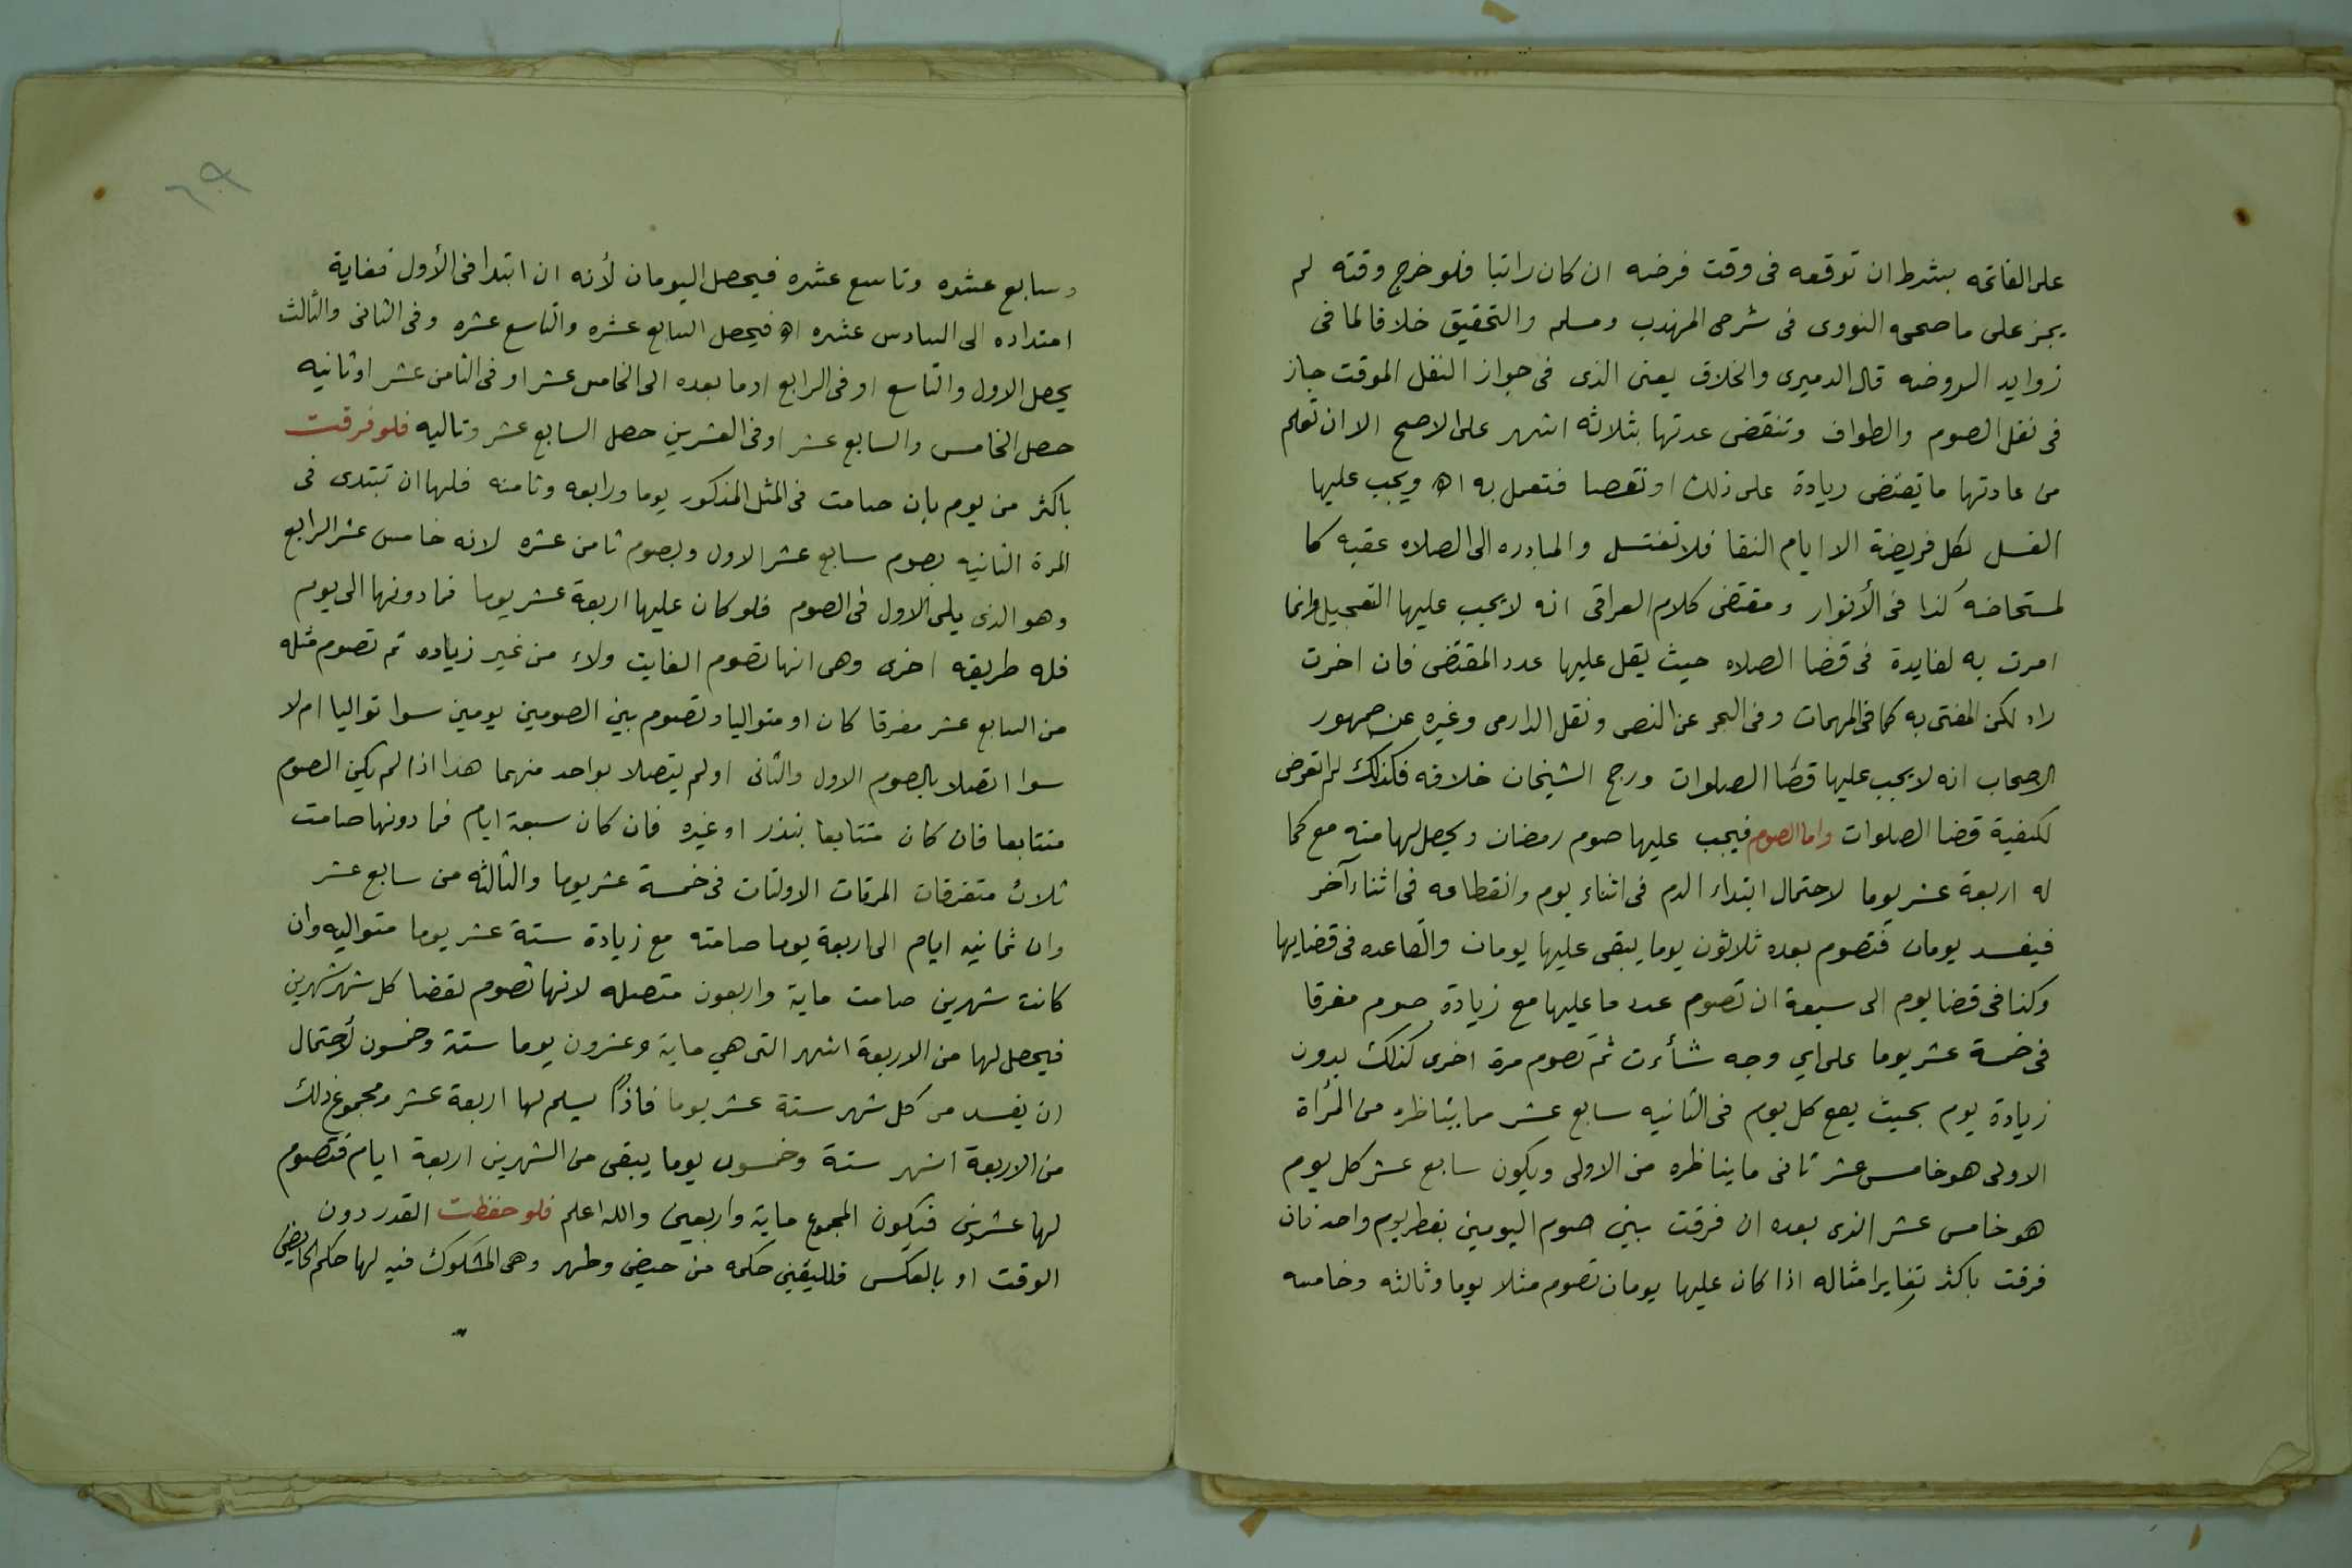 على الفاتحه بشرط ان توقعه فى وقت فرضه ان كان راتبا فلو خرج وقته لم
يجز على ما صححه النووى فى شرحى المهذب ومسلم والتحقيق خلافا لما فى
زوايد الروضه قال الدميرى والخلاف يعنى الذى فى جواز النفل الموقت جاز
فى نفل الصوم والطواف وتنقضى عدتها بثلاثه اشهر على الاصح الا ان تعلم
من عادتها ما تقتضى زيادة على ذلك او نقصا فتعمل به اه ويجب عليها
الغسل لكل فريضة الا ايام النقا فلا تغتسل والمبادره الى الصلاه عقبه كا
لمستحاضه كذا فى الأنوار ومقتضى كلام العراقى انه لا يجب عليها التعجيل وانما
امرت به لفايدة فى قضا الصلاه حيث يقل عليها عدد المقتضى فان اخرت
زاد لكن المفتى به كما فى المهمات وفى البحر عن النص ونقل الدارمى وغيره عن جمهور
الاصحاب انه لا يجب عليها قضا الصلوات ورجح الشيخان خلافه فكذلك لم اتعرض
لكيفية قضا الصلوات واما الصوم فيجب عليها صوم رمضان ويحصل لها منه مع كما
له اربعة عشر يوما لاحتمال ابتداء الدم فى اثناء يوم وانقطاعه فى اثناء آخر
فيفسد يومان فتصوم بعده ثلاثون يوما يبقى عليها يومان والقاعده فى قضايها
وكنا فى قضا يوم الى سبعة ان تصوم عدد ما عليها مع زيادة صوم مفرقا
فى خمسة عشر يوما على اي وجه شأءت ثم تصوم مرة اخرى كذلك بدون
زيادة يوم بحيث يقع كل يوم فى الثانيه سابع عشر مما يناظره من المرأة
الاولى هو خامس عشر ثانى ما يناظره من الاولى ويكون سابع عشر كل يوم
هو خامس عشر الذى بعده ان فرقت بين صوم اليومين بفطر يوم واحد فان
فرقت باكثر تغايرا مثاله اذا كان عليها يومان تصوم مثلا يوما وثالثه وخامسه
٦٩
وسابع عشره وتاسع عشره فيحصل اليومان لأنه ان ابتدا فى الأول فغاية
امتداده الى السادس عشره اه فيحصل السابع عشره والتاسع عشره وفى الثانى والثالث
يحصل الاول والتاسع او فى الرابع او ما بعده الى الخامس عشر او فى الثامن عشر او ثانيه
حصل الخامس والسابع عشر او فى العشرين حصل السابع عشر وتاليه فلو فرقت
باكثر من يوم بان صامت فى المثل المذكور يوما ورابعه وثامنه فلها ان تبتدى فى
المرة الثانيه بصوم سابع عشر الاول وبصوم ثامن عشره لانه خامس عشر الرابع
وهو الذى يلى الاول فى الصوم فلو كان عليها اربعة عشر يوما فما دونها الى يوم
فله طريقه اخرى وهى انها تصوم الفايت ولاء من غير زياده ثم تصوم مثله
من السابع عشر مفرقا كان او متواليا وتصوم بين الصومين يومين سوا تواليا ام لا
سوا اتصلا بالصوم الاول والثانى او لم يتصلا بواحد منهما هذا اذا لم يكن الصوم
متتابعا فان كان متتابعا بنذر او غيره فان كان سبعة ايام فما دونها صامت
ثلاث متفرقات المرتان الاولتان فى خمسة عشر يوما والثالثه من سابع عشر
وان ثمانيه ايام الى اربعة يوما صامته مع زيادة ستة عشر يوما متواليه وان
كانت شهرين صامت ماية واربعون متصله لانها تصوم لقضا كل شهر شهرين
فيحصل لها من الاربعة اشهر التى هي ماية وعشرون يوما ستة وخمسون لأحتمال
ان يفسد من كل شهر ستة عشر يوما فاذًا يسلم لها اربعة عشر ومجموع ذلك
من الاربعة اشهر ستة وخمسون يوما يبقى من الشهرين اربعة ايام فتصوم
لها عشرين فتكون المجموع ماية واربعين والله اعلم فلو حفظت القدر دون
الوقت او بالعكس فلليقين حكمه من حيض وطهر وهى المشكوك فيه لها حكم الحايض